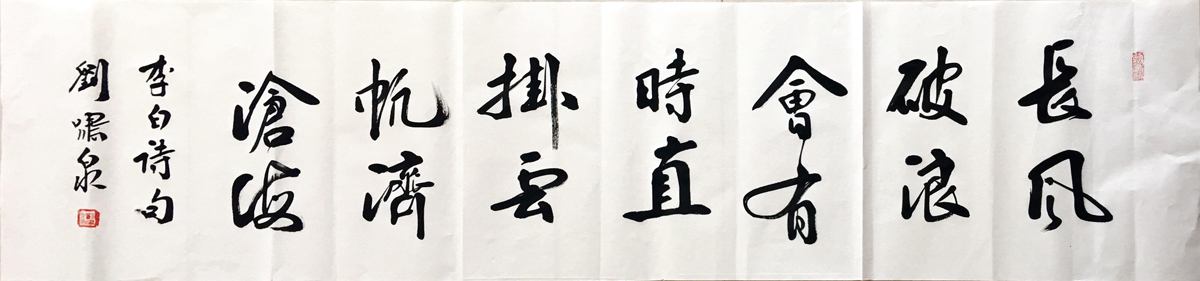 長風
破浪
會有
時直
掛雲
帆濟
滄海
李白詩句
劉嘯泉